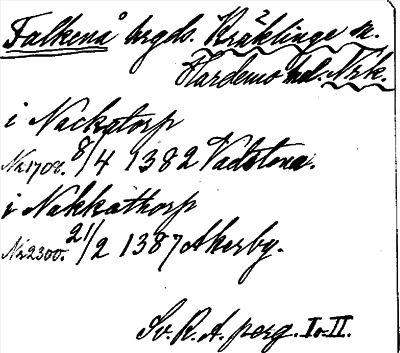 Falkenå hrgds. Kräklinge sn.
Hardemo hd. Nrk.
i Nackatorp
Nr 1708. 8/4 1382 Vadstena.
i Nakkathorp
Nr 2300. 21/2 1387 Åkerby.
Sv. R. A. perg. I o. II.